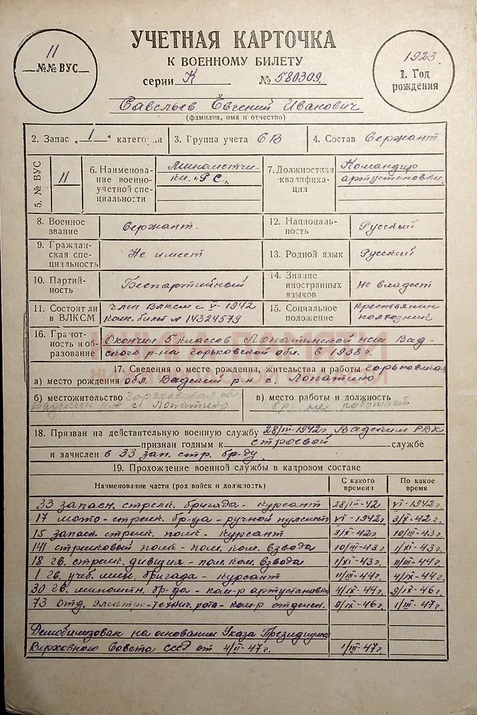 УЧЕТНАЯ КАРТОЧКА
К ВОЕННОМУ БИЛЕТУ
11
№№ ВУС
серии К № 580309
1923
1. Год
рождения
Савельев Евгений Иванович
(фамилия, имя и отчество)
2. Запас „1“ категории
3. Группа учета СВ
4. Состав Сержант.
5. № ВУС
11
6. Наименование военно-учетной специальности
Минометчики „РС“
7. Должностная квалификация
Командир артустановки
8. Военное звание
Сержант.
12. Национальность
Русский
9. Гражданская специальность
Не имеет
13. Родной язык
Русский
10. Партийность
Беспартийный
14. Знание иностранных языков
Не владеет
11. Состоит ли в ВЛКСМ
член ВЛКСМ с V-1942
ком. билет № 14324579
15. Социальное положение
крестьянин
колхозник
16. Грамотность и образование
Окончил 5 классов Лопатинской нсш Вадского р-на горьковской обл. в 1938 г.
17. Сведения о месте рождения, жительства и работы горьковская
а) место рождения обл. Вадский р-н с. Лопатино
б) местожительство горьковская об
Вадский с. Лопатино
в) работы и должность
18. Призван на действительную военную службу 28/III-1942 г Вадским РВК
признан годным к строевой службе
и зачислен в 33 зап. стр. бр-ду
19. Прохождение военной службы в кадровом составе
Наименование части (род войск и должность)
С какого времени
По какое время
33 запасн. стрелк. бригада - курсант 28/III-42 VI-1942 г
17 мото-стрелк. бр-да - ручной пулеметч VI-1942 г
15 запасн. стрелк. полк. - курсант
141 стрелковый полк - пом. ком. взвода
18 гв. стрелк. дивизия - пом. ком. взвода
1 гв. учеб. мин. бригада - курсант
30 гв. миномётн. бр-да - ком-р артустановки
73 отд. электро-технич. рота - ком-р отделен.
Демобилизован на основании Указа Президиума
Верховного Совета СССР от